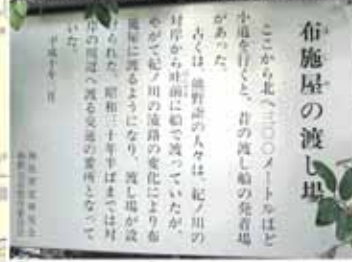 布施屋の渡し場
ここから北へ三〇〇メートルほど
小道を行くと、昔の渡し船の発着場
があった。
古くは、熊野詣の人々は、紀ノ川の
対岸から吐前に船で渡っていたが、
やがて紀ノ川の流路の変化により布
施屋に渡るようになり、渡し場が設
けられた。昭和三十年半ばまでは対
岸の川辺へ渡る交通の要所となって
いた。
平成十年